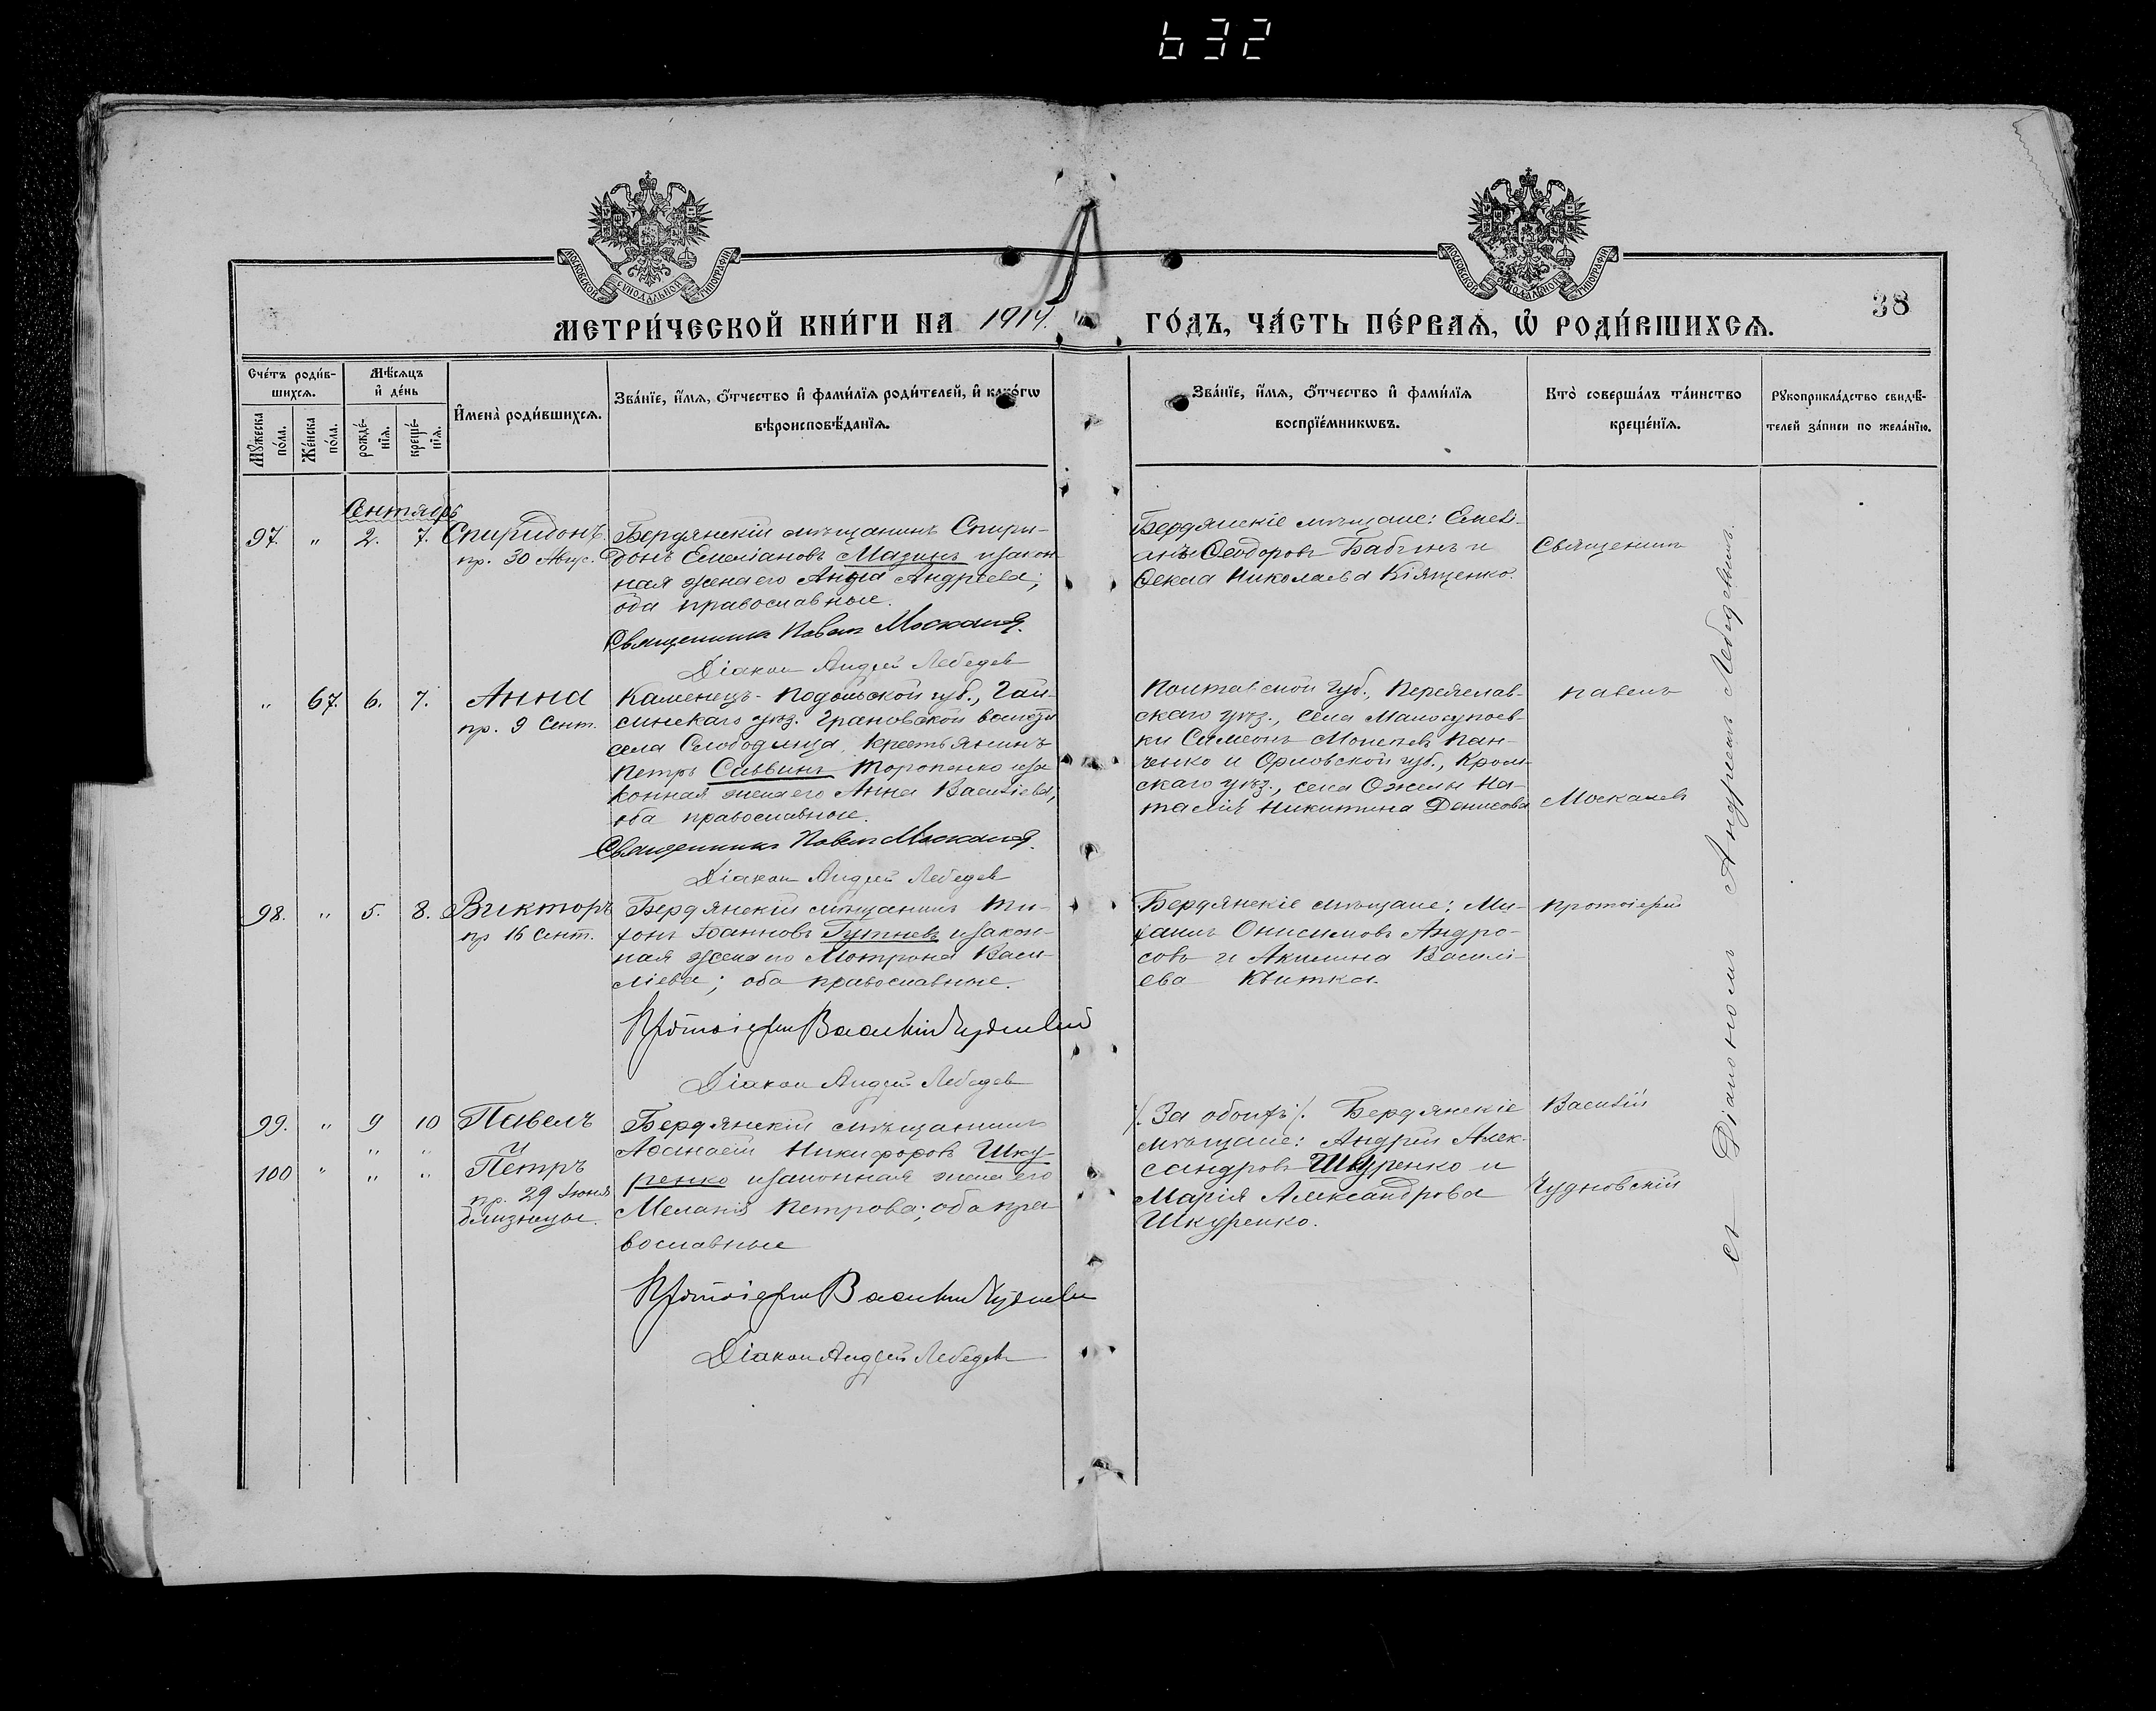 632
МОСКОВСКОЙ СУНОДАЛЬНОЙ ТИПОГРАФІИ
МОСКОВСКОЙ СУНОДАЛЬНОЙ ТИПОГРАФІИ
38
МЕТРИ́ЧЕСКОЙ КНИ́ГИ НА 1914.
ГО́ДЪ, ЧА́СТЬ ПЕ́РВАѦ, Ѡ РОДИ́ВШИХСѦ.
Сче́тъ роди́в-
шихсѧ.
Мꙋжеска по́ла.
Же́нска по́ла.
Мѣ́сѧцъ
и де́нь
рожде́-
нїѧ.
креще́-
нїѧ.
И҆мена̀ роди́вшихсѧ.
Зва́нїе, и҆́мѧ, ѻ҆́тчество и҆ фами́лїѧ роди́телей, и҆ како́гѡ
вѣроисповѣ́данїѧ.
Зва́нїе, и҆́мѧ, ѻ҆́тчество и҆ фами́лїѧ
воспрїе́мникѡвъ.
Кто̀ соверша́лъ та́инство
креще́нїѧ.
Рꙋкоприкла́дство свидѣ́-
телей за́писи по жела́нїю.
Сентябрь
97. " 2. 7. Спиридонъ.
пр. 30 Авгус.
Бердянскій мѣщанинъ Спири-
донъ Емеліановъ Мазинъ и закон-
ная жена его Анна Андреева;
оба православные.
Священникъ Павелъ Москалев.
Діакон Андрей Лебедев
Бердянскіе мѣщане: Емелі-
анъ Ѳеодоровъ Бабгинъ и
Ѳекла Николаева Кіященко.
Священникъ
" 67. 6. 7. Анна
пр. 9 Сент.
Каменецъ-Подольской губ., Гай-
синскаго уѣз. Грановской волости
села Слободища, крестьянинъ
Петръ Саввинъ Торопенко и за-
конная жена его Анна Василіева;
оба православные.
Священникъ Павелъ Москалев.
Діакон Андрей Лебедев
Полтавской губ., Переяслав-
скаго уѣз., села Малосупоев-
ки Симеонъ Пан-
ченко и Орловской губ., Кром-
скаго уѣз., села На-
талія Никитина Денисова
Павелъ
Москалевъ
98. " 5. 8. Викторъ
пр 16 Сент.
Бердянскій мѣщанинъ Ти-
хонъ Іоанновъ Гутневъ и закон-
ная жена его Мотрона Васи-
ліева; оба православные.
Протоіерей Василій Чудновскій
Діакон Андрей Лебедев
Бердянскіе мѣщане: Ми-
хаилъ Онисимовъ Андро-
совъ и Акилина Василі-
ева Квитка.
Протоіерей
99. " 9 10 Павелъ
" "
и
100 " " " Петръ
пр. 29 Іюня
близнецы.
Бердянскій мѣщанинъ
Аѳанасій Никифоровъ Шку-
ренко и законная жена его
Меланія Петрова; оба пра-
вославные
Протоіерей Василій Чудновскій
Діакон Андрей Лебедев
/. За обоихъ /. Бердянскіе
мѣщане: Андрей Алек-
сандровъ Шкуренко и
Марія Александрова
Шкуренко.
Василій
Чудновскій
съ Діакономъ Андреемъ Лебедевымъ.